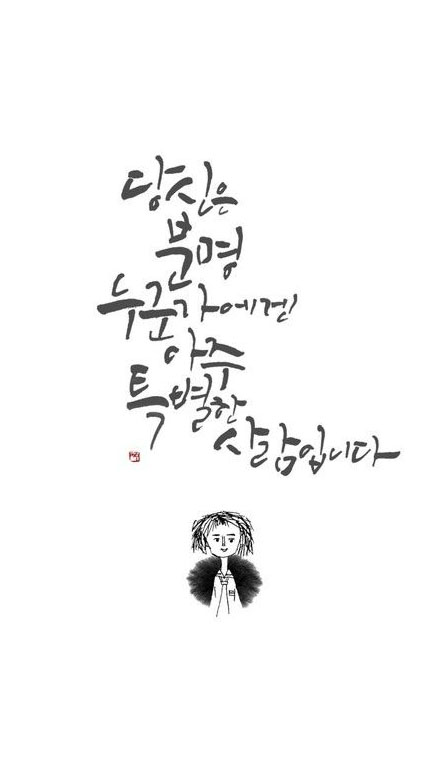 당신은
분명
누군가에겐
아주
특별한
사람입니다